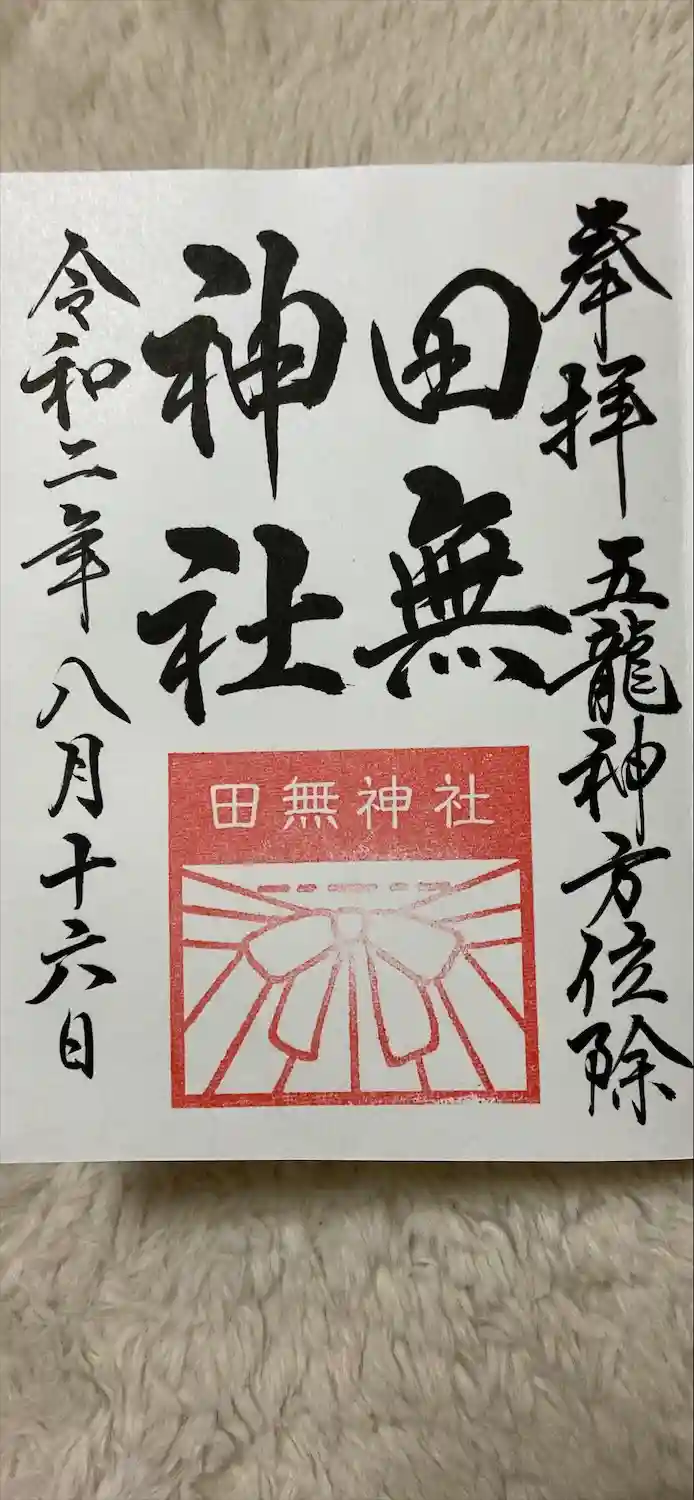 奉拝 五龍神方位除
田無
神社
令和二年八月十六日
田無神社